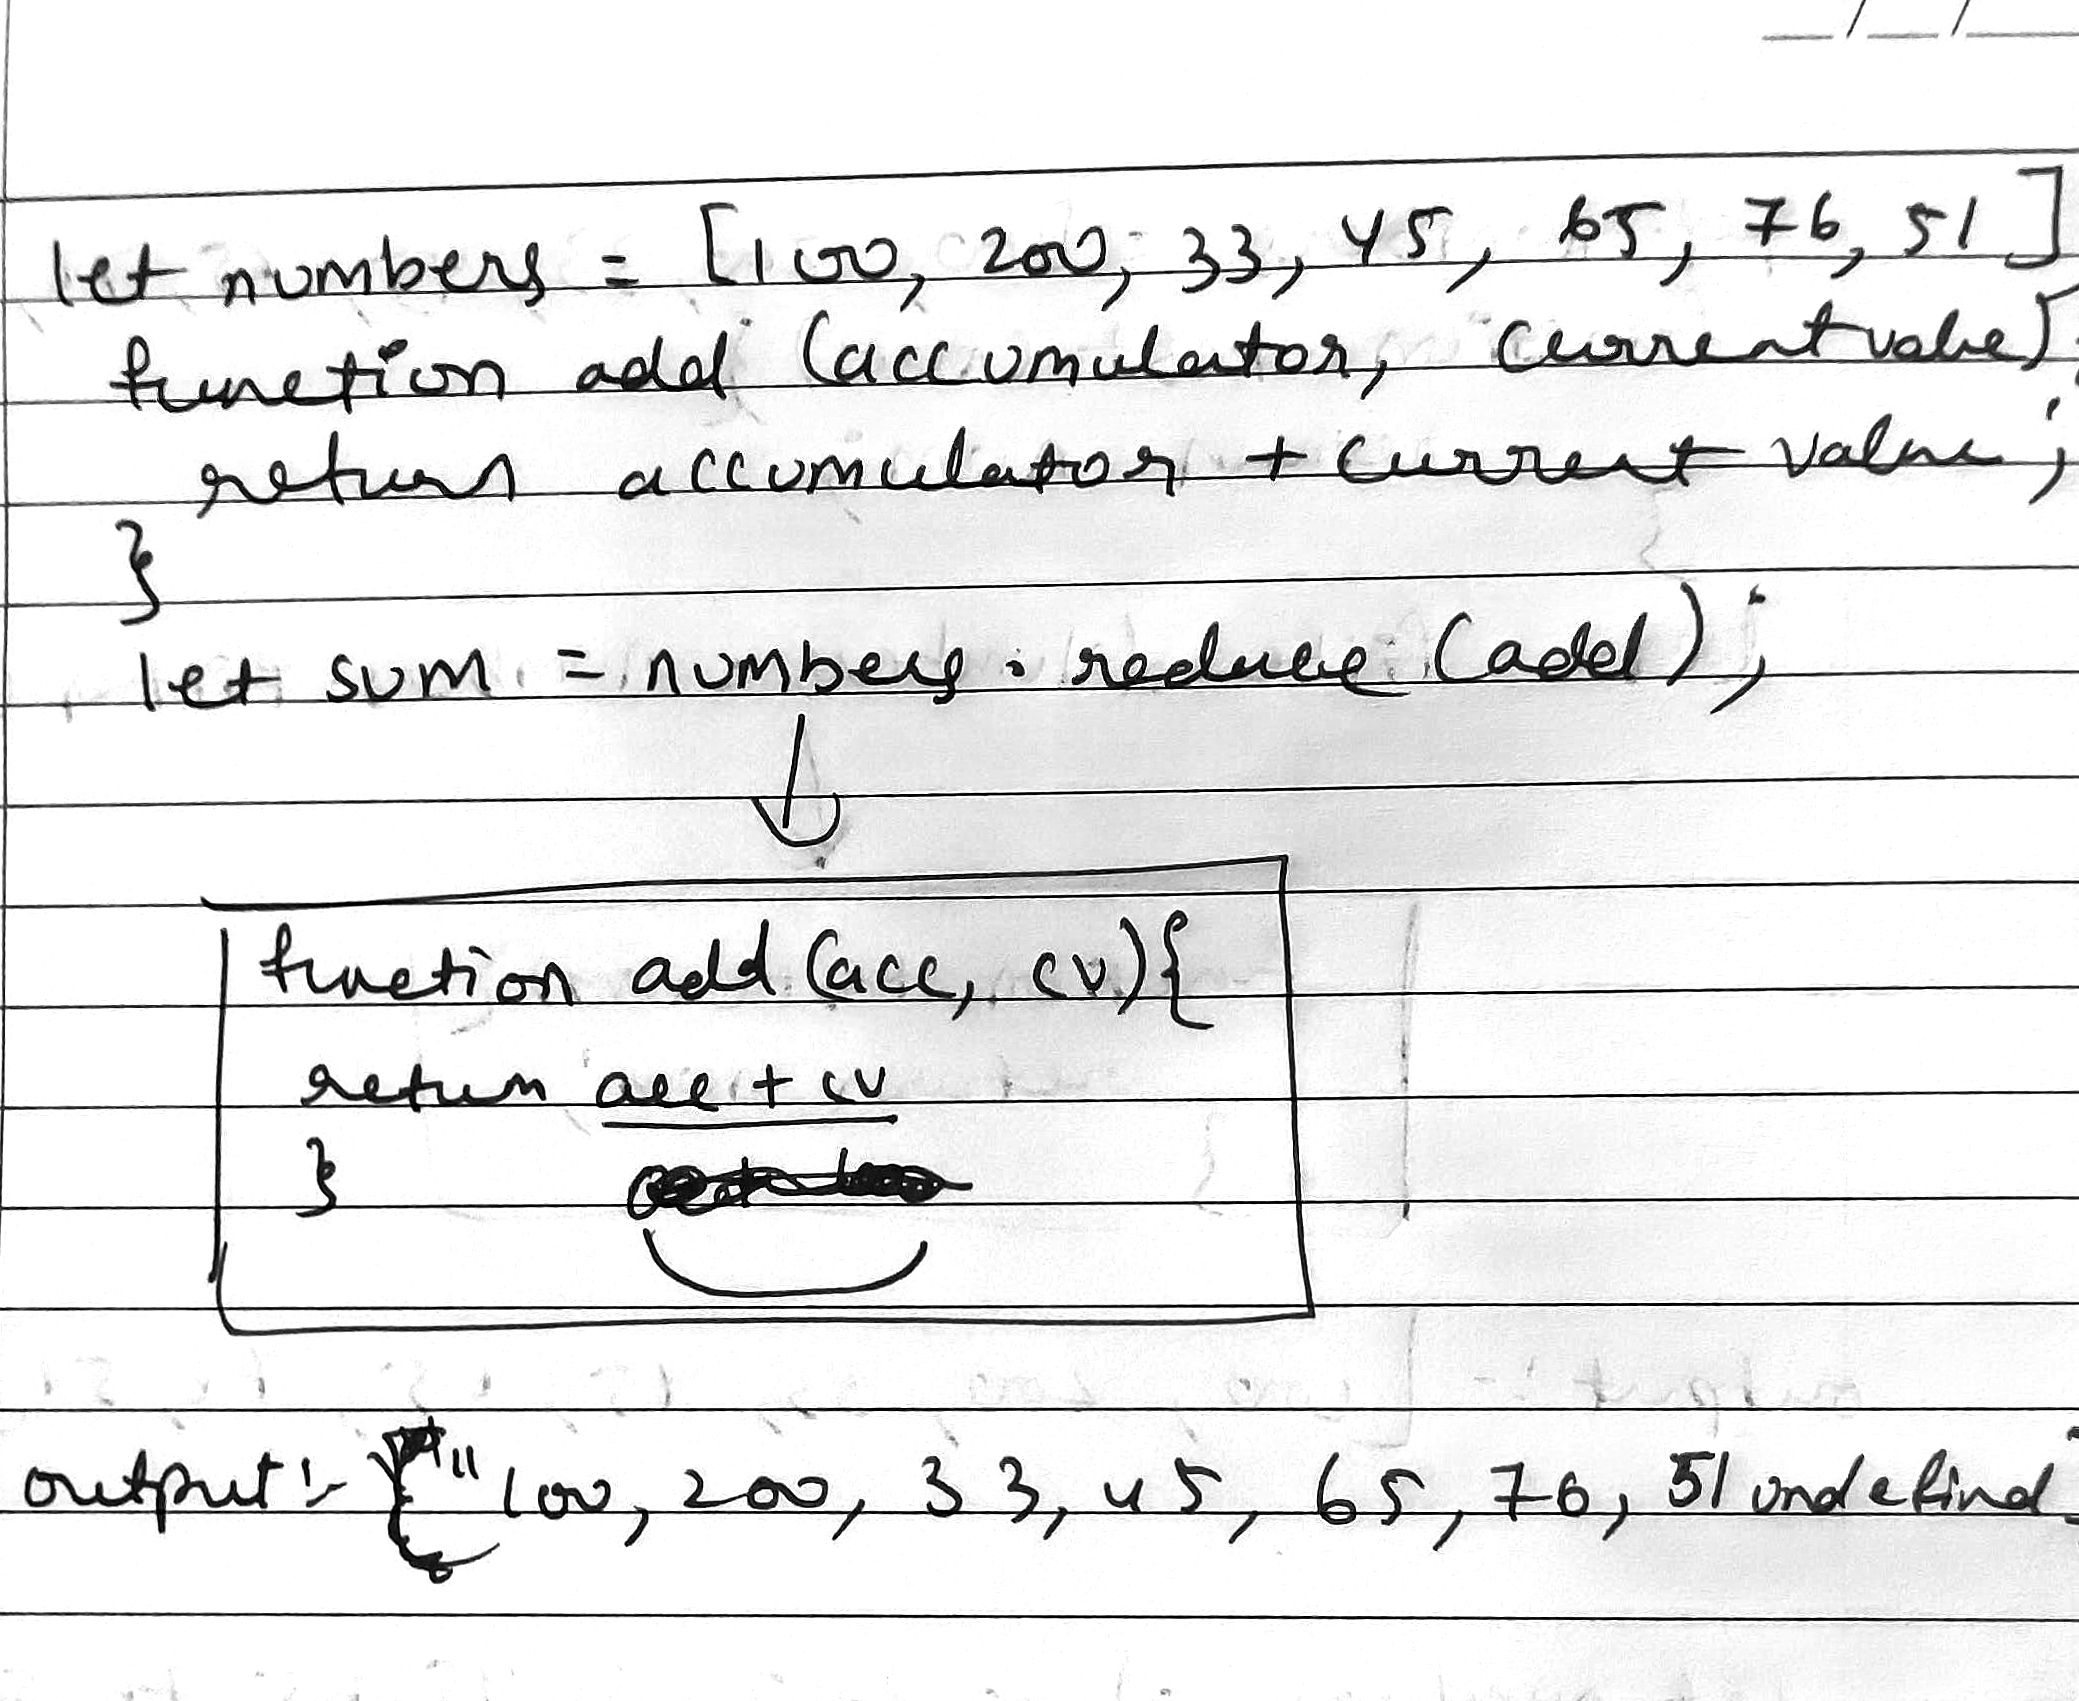 let numbers = [100, 200, 33, 45, 65, 76, 51]
function add (accumulator, currentvalue) {
return accumulator + current value ;
}
let sum = numbers . reduce (add) ;
function add (acc, cv) {
return acc + cv
}
output :- " 100, 200, 33, 45, 65, 76, 51 undefind